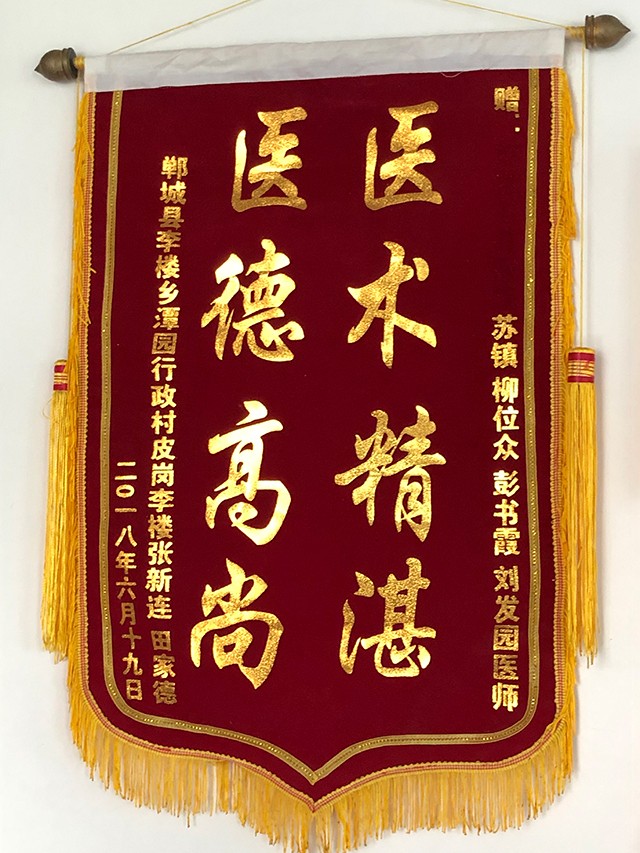 赠:
苏镇 柳位众 彭书霞 刘发园医师
医术精湛
医德高尚
郸城县李楼乡潭园行政村皮岗李楼张新连 田家德
二〇一八年六月十九日